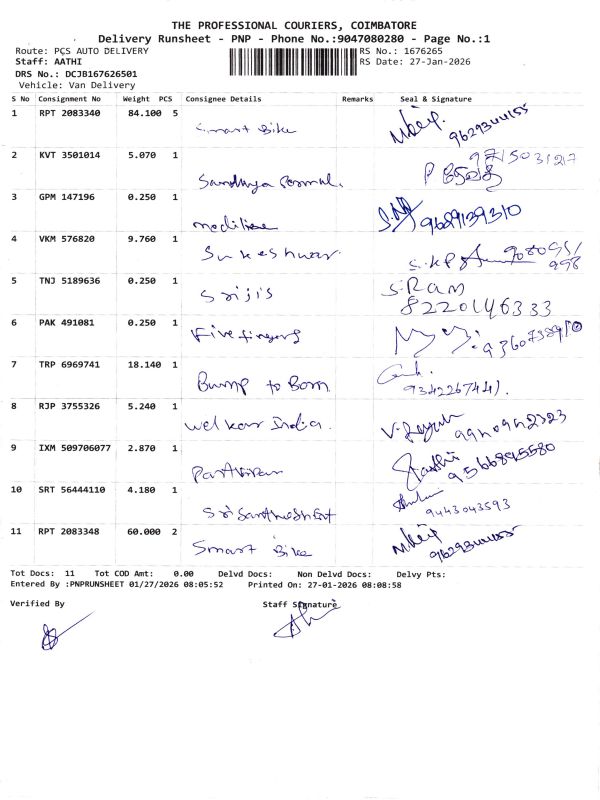 THE PROFESSIONAL COURIERS, COIMBATORE
Delivery Runsheet - PNP - Phone No.:9047080280 - Page No.:1
Route: PCS AUTO DELIVERY RS No.: 1676265
Staff: AATHI RS Date: 27-Jan-2026
DRS No.: DCJB167626501
Vehicle: Van Delivery
S No Consignment No Weight PCS Consignee Details Remarks Seal & Signature
1 RPT 2083340 84.100 5 Smart Bike
2 KVT 3501014 5.070 1 Sandhya
3 GPM 147196 0.250 1 9689139310
4 VKM 576820 9.760 1 Sukeshwar
5 TNJ 5189636 0.250 1 Srijis S.RAM
8220146333
6 PAK 491081 0.250 1 Five fingers
7 TRP 6969741 18.140 1 Bump to Born
9342267441
8 RJP 3755326 5.240 1 Welkar India.
9 IXM 509706077 2.870 1
10 SRT 56444110 4.180 1 9443043593
11 RPT 2083348 60.000 2 Smart Bike
Tot Docs: 11 Tot COD Amt: 0.00 Delvd Docs: Non Delvd Docs: Delvy Pts:
Entered By :PNPRUNSHEET 01/27/2026 08:05:52 Printed On: 27-01-2026 08:08:58
Verified By Staff Signature